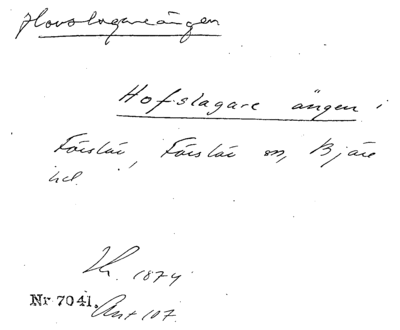 Hovslagareängen
Hofslagare ängen i
Förslöv, Förslöv sn, Bjäre
hd.
1874
Nr 7041. Ant 107.